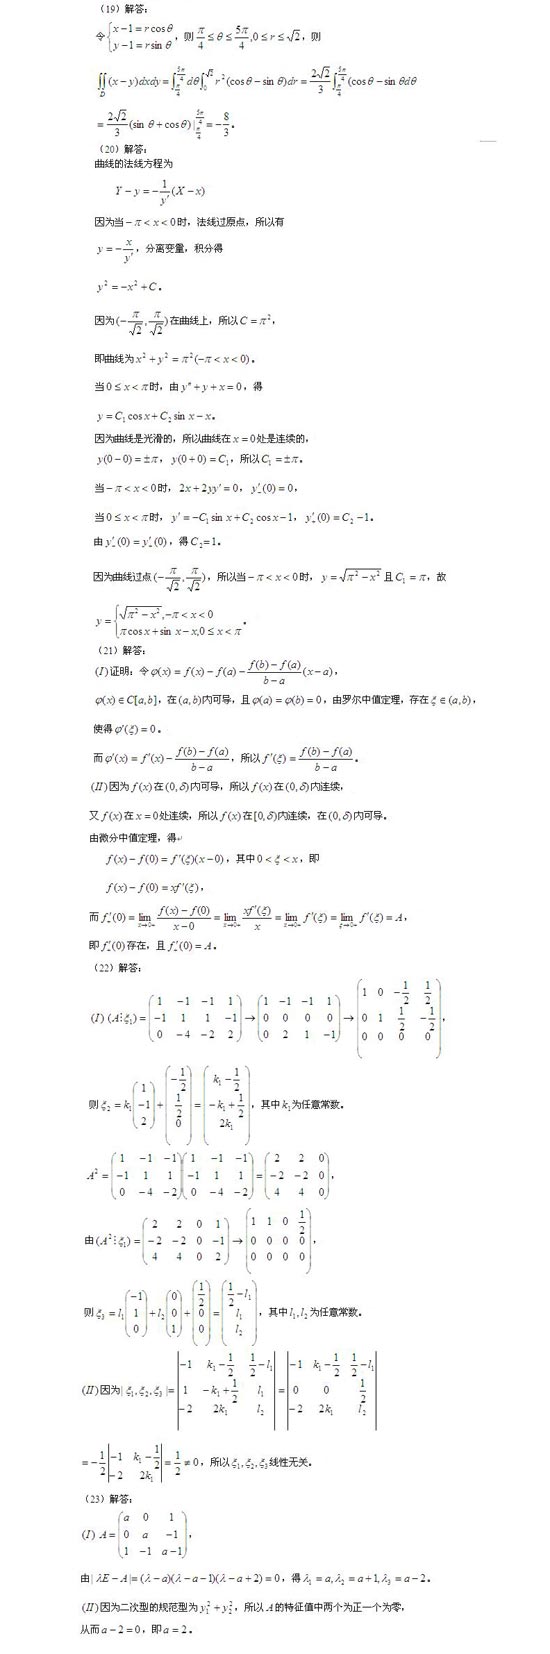 （19）解答：
令{x－1＝r cosθ, y－1＝r sinθ，则 π/4≤θ≤5π/4,0≤r≤√2，则
∬_D(x－y)dxdy＝∫_{π/4}^{5π/4}dθ∫_0^{√2}r²(cosθ－sinθ)dr＝(2√2/3)∫_{π/4}^{5π/4}(cosθ－sinθdθ
＝(2√2/3)(sinθ＋cosθ)|_{π/4}^{5π/4}＝－8/3。
（20）解答：
曲线的法线方程为
Y－y＝－(1/y')(X－x)
因为当－π<x<0时，法线过原点，所以有
y＝－x/y'，分离变量，积分得
y²＝－x²＋C。
因为(－π/√2,π/√2)在曲线上，所以C＝π²，
即曲线为x²＋y²＝π²(－π<x<0)。
当0≤x<π时，由y''＋y＋x＝0，得
y＝C₁cos x＋C₂sin x－x。
因为曲线是光滑的，所以曲线在x＝0处是连续的，
y(0－0)＝±π，y(0＋0)＝C₁，所以C₁＝±π。
当－π<x<0时，2x＋2yy'＝0，y'₋(0)＝0，
当0≤x<π时，y'＝－C₁sin x＋C₂cos x－1，y'₊(0)＝C₂－1。
由y'₋(0)＝y'₊(0)，得C₂＝1。
因为曲线过点(－π/√2,π/√2)，所以当－π<x<0时，y＝√(π²－x²)且C₁＝π，故
y＝{√(π²－x²),－π<x<0; πcos x＋sin x－x,0≤x<π。
（21）解答：
(I)证明：令φ(x)＝f(x)－f(a)－(f(b)－f(a))/(b－a)(x－a)，
φ(x)∈C[a,b]，在(a,b)内可导，且φ(a)＝φ(b)＝0，由罗尔中值定理，存在ξ∈(a,b)，
使得φ'(ξ)＝0。
而φ'(x)＝f'(x)－(f(b)－f(a))/(b－a)，所以f'(ξ)＝(f(b)－f(a))/(b－a)。
(II)因为f(x)在(0,δ)内可导，所以f(x)在(0,δ)内连续，
又f(x)在x＝0处连续，所以f(x)在[0,δ)内连续，在(0,δ)内可导。
由微分中值定理，得
f(x)－f(0)＝f'(ξ)(x－0)，其中0<ξ<x，即
f(x)－f(0)＝xf'(ξ)，
而f'₊(0)＝lim_{x→0+}(f(x)－f(0))/(x－0)＝lim_{x→0+}xf'(ξ)/x＝lim_{x→0+}f'(ξ)＝lim_{ξ→0+}f'(ξ)＝A，
即f'₊(0)存在，且f'₊(0)＝A。
（22）解答：
(I)(A⋮ξ₁)＝(1 －1 －1 1; －1 1 1 －1; 0 －4 －2 2)→(1 －1 －1 1; 0 0 0 0; 0 2 1 －1)→(1 0 －1/2 1/2; 0 1 1/2 －1/2; 0 0 0 0)，
则ξ₂＝k₁(1; －1; 2)＋(－1/2; 1/2; 0)＝(k₁－1/2; －k₁＋1/2; 2k₁)，其中k₁为任意常数。
A²＝(1 －1 －1; －1 1 1; 0 －4 －2)(1 －1 －1; －1 1 1; 0 －4 －2)＝(2 2 0; －2 －2 0; 4 4 0)，
由(A²⋮ξ₁)＝(2 2 0 1; －2 －2 0 －1; 4 4 0 2)→(1 1 0 1/2; 0 0 0 0; 0 0 0 0)，
则ξ₃＝l₁(－1; 1; 0)＋l₂(0; 0; 1)＋(1/2; 0; 0)＝(1/2－l₁; l₁; l₂)，其中l₁,l₂为任意常数。
(II)因为|ξ₁,ξ₂,ξ₃|＝|－1 k₁－1/2 1/2－l₁; 1 －k₁＋1/2 l₁; －2 2k₁ l₂|＝|－1 k₁－1/2 1/2－l₁; 0 0 1/2; －2 2k₁ l₂|
＝－1/2|－1 k₁－1/2; －2 2k₁|＝1/2≠0，所以ξ₁,ξ₂,ξ₃线性无关。
（23）解答：
(I) A＝(a 0 1; 0 a －1; 1 －1 a－1)，
由|λE－A|＝(λ－a)(λ－a－1)(λ－a＋2)＝0，得λ₁＝a,λ₂＝a＋1,λ₃＝a－2。
(II)因为二次型的规范型为y₁²＋y₂²，所以A的特征值中两个为正一个为零，
从而a－2＝0，即a＝2。